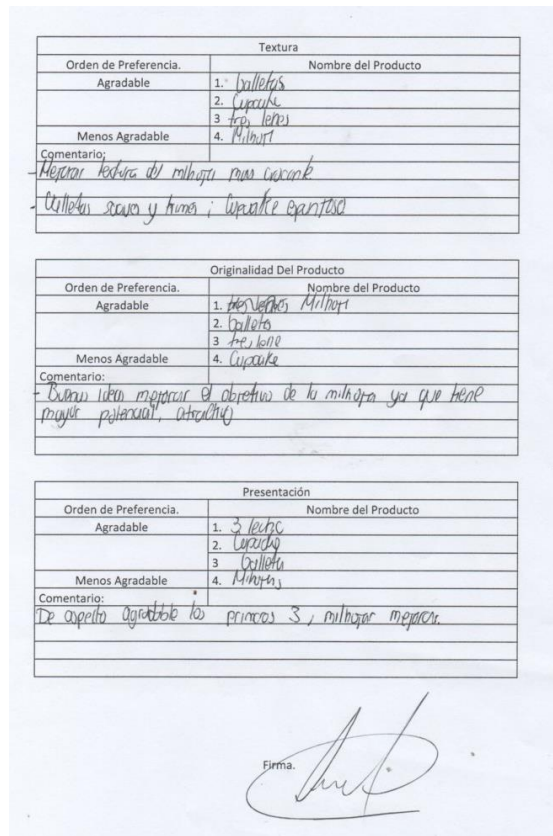 Textura
Orden de Preferencia. Nombre del Producto
Agradable 1. Galletas
2. Cupcake
3 tres leches
Menos Agradable 4. Milhoja
Comentario;
- Mejorar textura del milhoja mas crocante
- Galletas suaves y ; Cupcake
Originalidad Del Producto
Orden de Preferencia. Nombre del Producto
Agradable 1. Milhoja
2. Galleta
3 tres leche
Menos Agradable 4. Cupcake
Comentario:
- Buenas ideas mejorar el objetivo de la milhoja ya que tiene
mayor potencial, atractivo
Presentación
Orden de Preferencia. Nombre del Producto
Agradable 1. 3 leche
2. Cupcake
3 Galleta
Menos Agradable 4. Milhojas
Comentario:
De aspecto agradable los primeros 3, milhojas mejorar.
Firma.